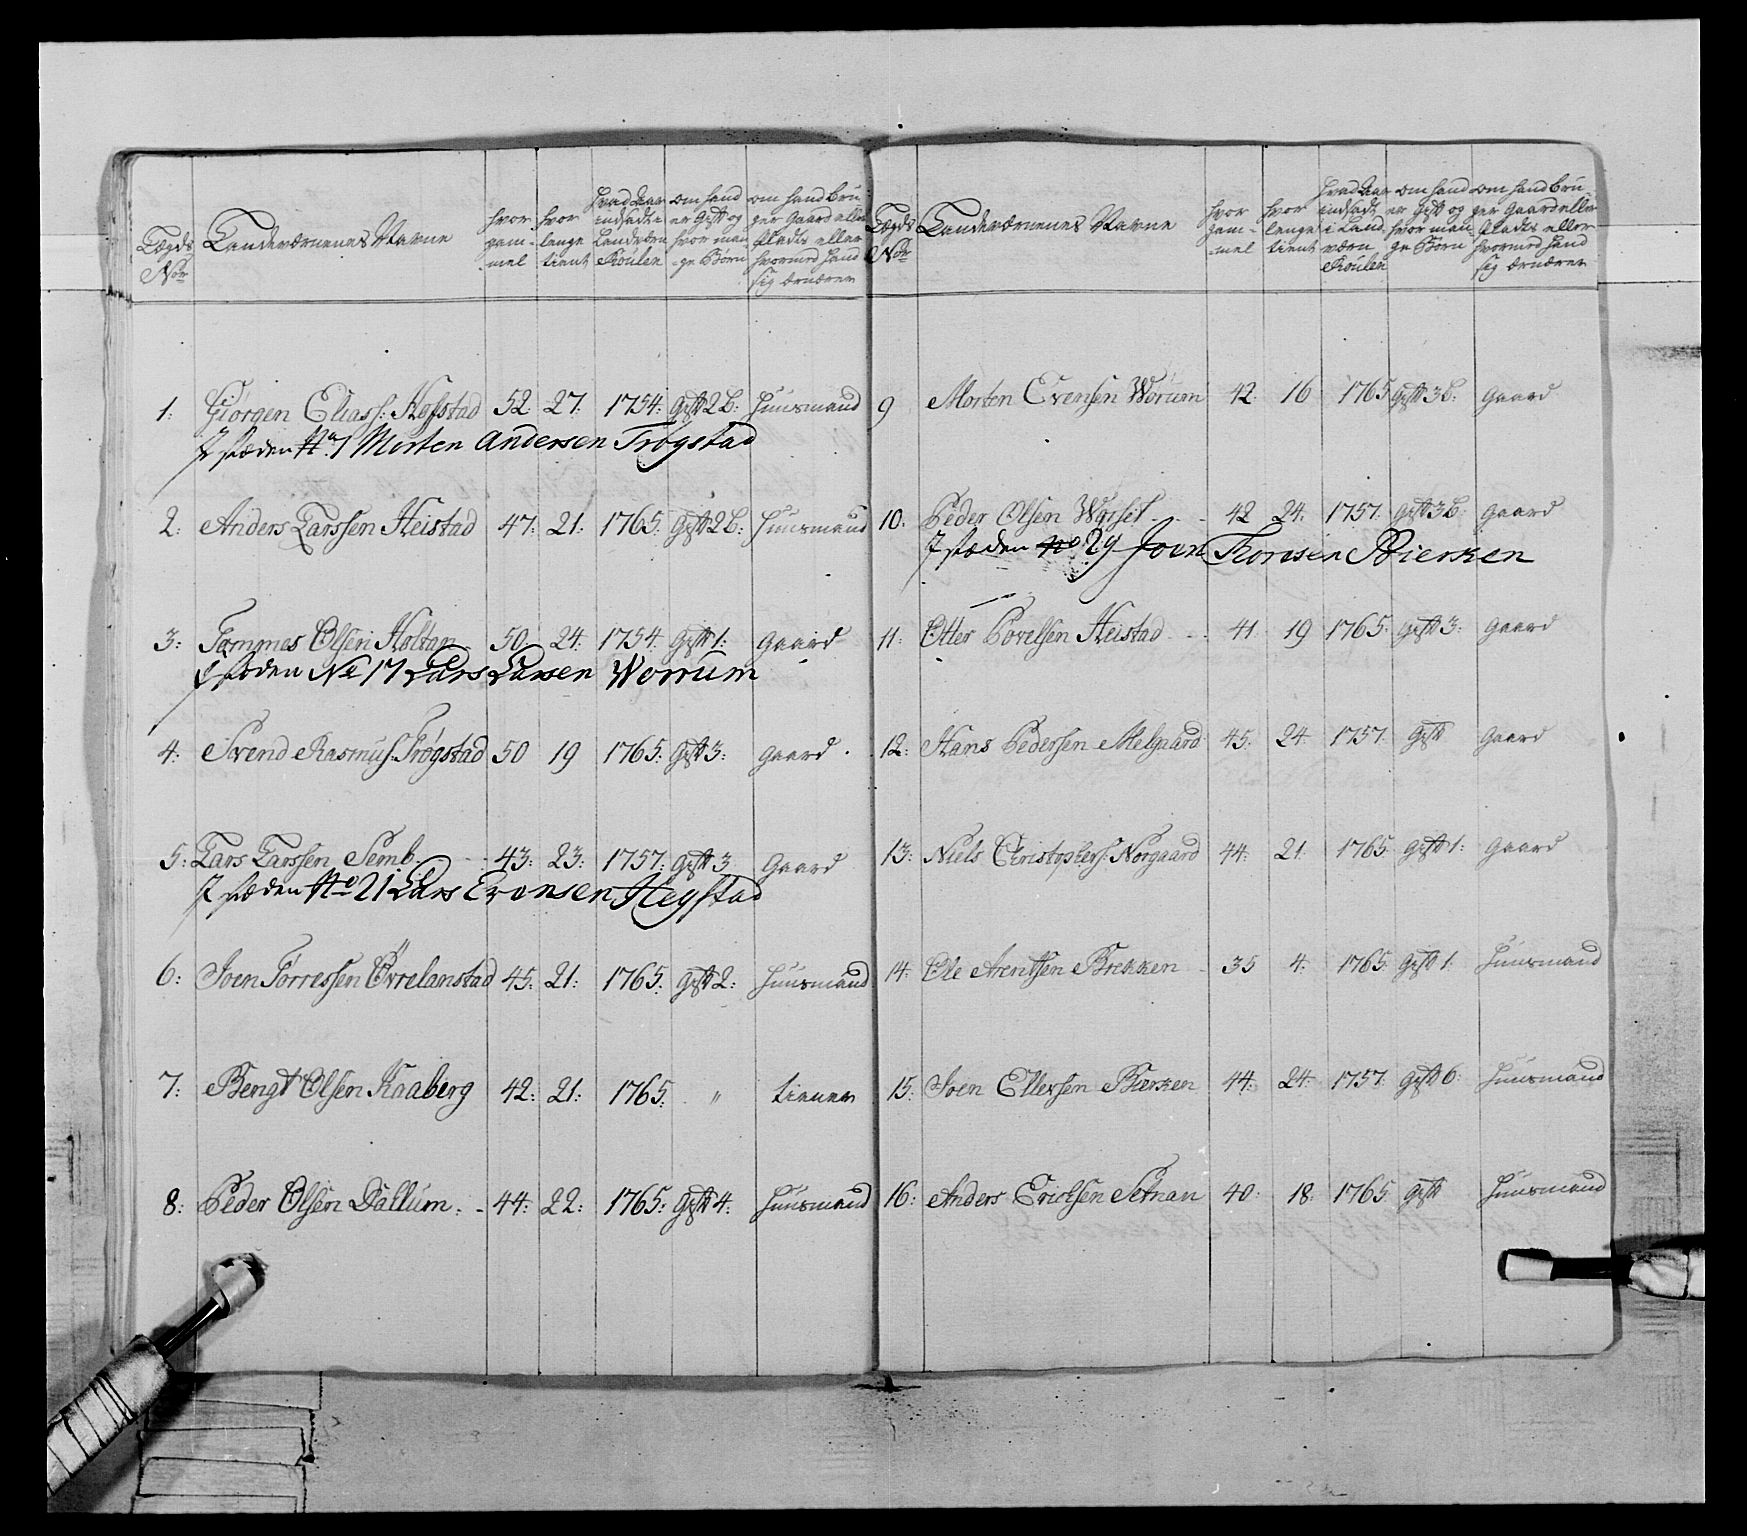 Lægds Nor
Landeværnenes Navne
hvor gam-mel
hvor lenge tient
hvad Aar indsadt i Landværn Roulen
om hand er Gift og hvor man-ge Børn
om hand bru-ger Gaard eller Pladts eller hvormed hand sig ærnærer
1: Giörgen Eliass: Hofstad 52 27: 1754: Gift 2 B: Huusmand
I stæden No 1 Morten Andersen Trøgstad
2: Anders Larssen Heistad 47: 21: 1765: Gift 2 B: Huusmand
3: Tommes Olsen Holtan 50 24: 1754: Gift 1: Gaard
I stæden No 17 Lars Larsen Worrum
4: Svend Rasmuss: Trøgstad 50 19 1765: Gift 3: Gaard.
5: Lars Larssen Semb 43: 23: 1757: Gift 3 Gaard
I stæden No 21 Lars Evensen Hegstad
6: Joen Torressen Övrelanstad 45: 21: 1765: Gift 2: Huusmand
7: Bengt Olsen Kaaberg 42: 21: 1765: " tiener
8: Peder Olsen Dallum 44: 22: 1765: Gift 4: Huusmand
Lægds Nor
Landeværnenes Navne
hvor gam-mel
hvor lenge tient
hvad Aar indsadt i Land-værn Roulen
om hand er Gift og hvor man-ge Børn
om hand bru-ger Gaard eller Pladts eller hvormed hand sig ærnærer
9 Morten Evensen Worum 42 16 1765 Gift 3 B: Gaard
10: Peder Olsen 42 24: 1757: Gift 3 B: Gaard
I stæden No 29 Joen Thomsen
11: Otter Povelsen Heistad 41 19 1765: Gift 3: Gaard
12: Hans Pedersen Melgaard 45: 24 1757 Gift Gaard
13: Niels Christophers: Norgaard 44: 21 1765 Gift 1: Gaard
14: Ole Arentsen Brekken 35 4: 1765 Gift 1: Huusmand
15: Joen Ellevsen 44: 24: 1757: Gift 6: Huusmand
16: Anders Ericksen Setnan 40: 18: 1765 Gift Huusmand